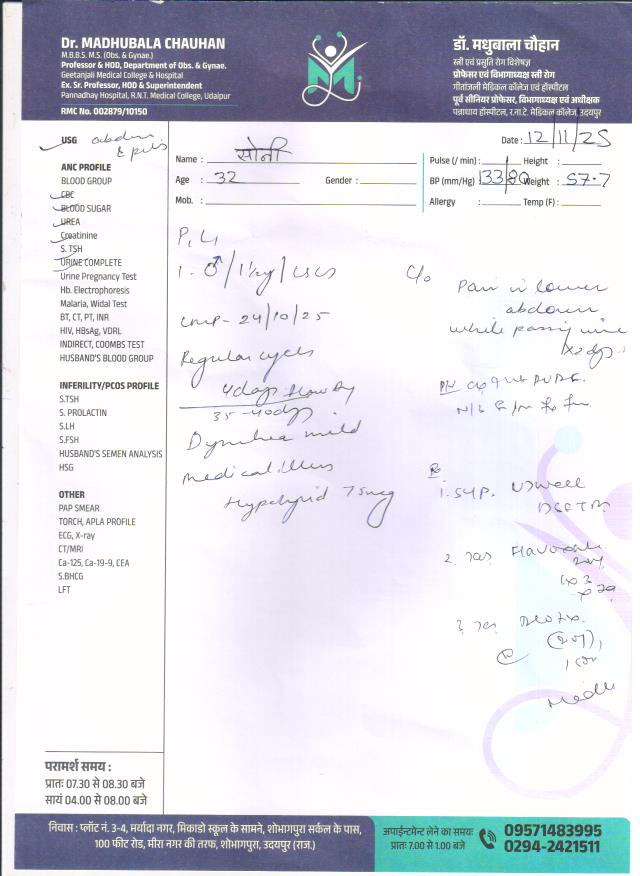 Dr. MADHUBALA CHAUHAN
M.B.B.S. M.S. (Obs. & Gynae.)
Professor & HOD, Department of Obs. & Gynae.
Geetanjali Medical College & Hospital
Ex. Sr. Professor, HOD & Superintendent
Pannadhay Hospital, R.N.T. Medical College, Udaipur
RMC No. 002879/10150
डॉ. मधुबाला चौहान
स्त्री एवं प्रसुति रोग विशेषज्ञ
प्रोफेसर एवं विभागाध्यक्ष स्त्री रोग
गीतांजली मेडिकल कॉलेज एवं हॉस्पीटल
पूर्व सीनियर प्रोफेसर, विभागाध्यक्ष एवं अधीक्षक
पन्नाधाय हॉस्पीटल, र.ना.टे. मेडिकल कॉलेज, उदयपुर
Date : 12/11/25
Name : सोनी
Age : 32 Gender :
Mob. :
Pulse (/ min) : Height :
BP (mm/Hg) 133/80 Weight : 57.7
Allergy : Temp (F) :
USG abdomen
& pelvis
ANC PROFILE
BLOOD GROUP
CBC
BLOOD SUGAR
UREA
Creatinine
S. TSH
URINE COMPLETE
Urine Pregnancy Test
Hb. Electrophoresis
Malaria, Widal Test
BT, CT, PT, INR
HIV, HBsAg, VDRL
INDIRECT, COOMBS TEST
HUSBAND'S BLOOD GROUP
INFERILITY/PCOS PROFILE
S.TSH
S. PROLACTIN
S.LH
S.FSH
HUSBAND'S SEMEN ANALYSIS
HSG
OTHER
PAP SMEAR
TORCH, APLA PROFILE
ECG, X-ray
CT/MRI
Ca-125, Ca-19-9, CEA
S.BHCG
LFT
P1 L1
1 - ♂ / / LSCS
LMP - 24/10/25
Regular cycles
4 days flow
35-40 days
mild
medical illness
75 mcg
C/o
Pain in lower
abdomen
while passing urine
Rx
1. Syp.
2. Tab
3. Tab
परामर्श समय :
प्रातः 07.30 से 08.30 बजे
सायं 04.00 से 08.00 बजे
निवास : प्लॉट नं. 3-4, मर्यादा नगर, मिकाडो स्कूल के सामने, शोभागपुरा सर्कल के पास,
100 फीट रोड, मीरा नगर की तरफ, शोभागपुरा, उदयपुर (राज.)
अपाईन्टमेन्ट लेने का समयः
प्रातः 7.00 से 1.00 बजे
09571483995
0294-2421511